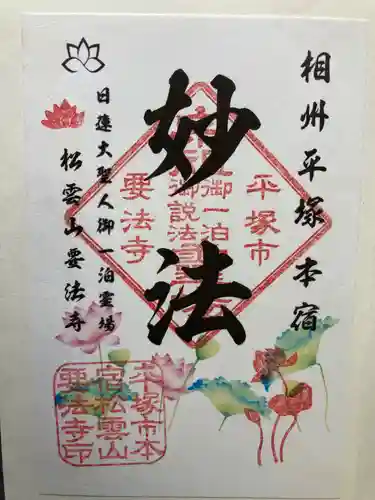 相州平塚本宿
妙法
日蓮大聖人御一泊霊場
松雲山要法寺
平塚市
御一泊
御説法
要法寺
平塚市本
宿松雲山
要法寺印